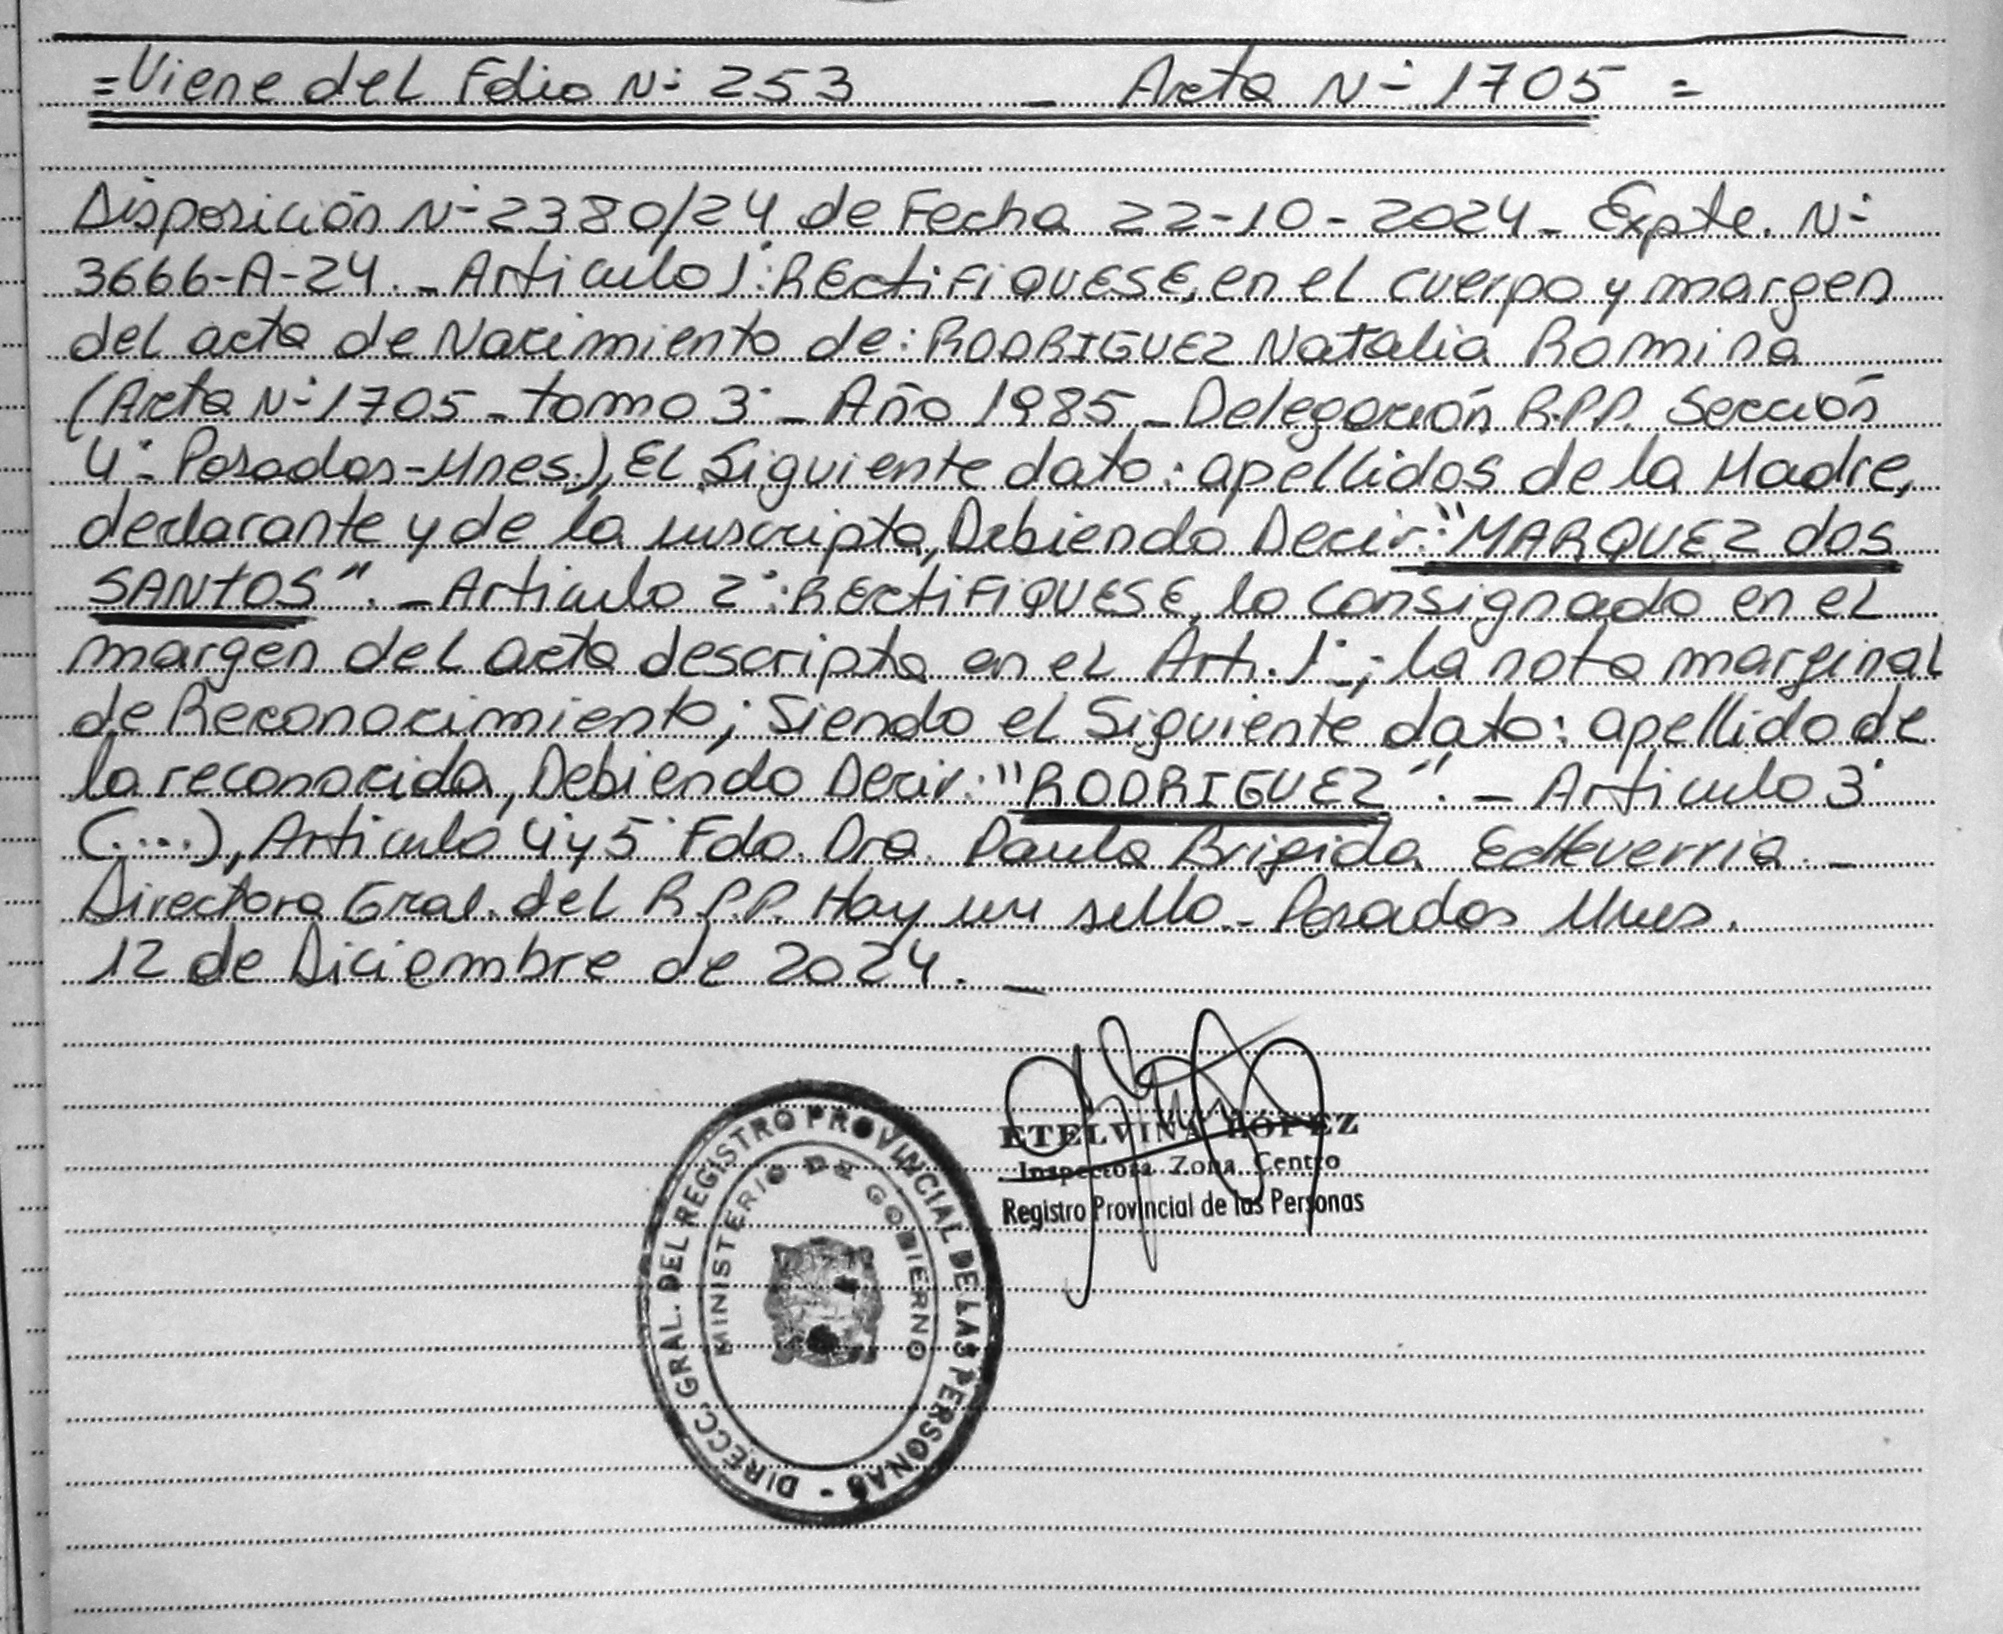 =Viene del Folio N- 253 _ Acta N- 1705 =
Disposición N- 2380/24 de Fecha 22-10-2024_ Expte. N-
3666-A-24._Articulo 1°: RECtiFiQUESE, en el cuerpo y margen
del acta de Nacimiento de: RODRIGUEZ Natalia Romina
(Acta N- 1705_tomo 3°_Año 1985_Delegación R.P.P. Sección
4°- Posadas-Mnes.), El Siguiente dato: apellidos de la Madre,
declarante y de la inscripta, Debiendo Decir: "MARQUEZ dos
SANTOS"._Articulo 2°: RECtiFiQUESE, lo consignado en el
margen del acta descripta en el Art. 1°-; la nota marginal
de Reconocimiento; Siendo el Siguiente dato: apellido de
la reconocida, Debiendo Decir: "RODRIGUEZ"._ Articulo 3°
(....), Articulo 4 y 5° Fdo. Dra. Paula Brigida Echeverria._
Directora Gral. del R.P.P. Hay un sello_ Posadas Mnes.
12 de Diciembre de 2024._
ETELVINA LOPEZ
Inspectora Zona Centro
Registro Provincial de las Personas
DIRECC. GRAL. DEL REGISTRO PROVINCIAL DE LAS PERSONAS -
MINISTERIO DE GOBIERNO